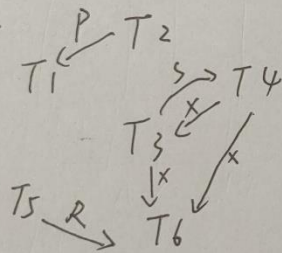 P T2
T1
S T4
X
T3
X X
T5 R T6